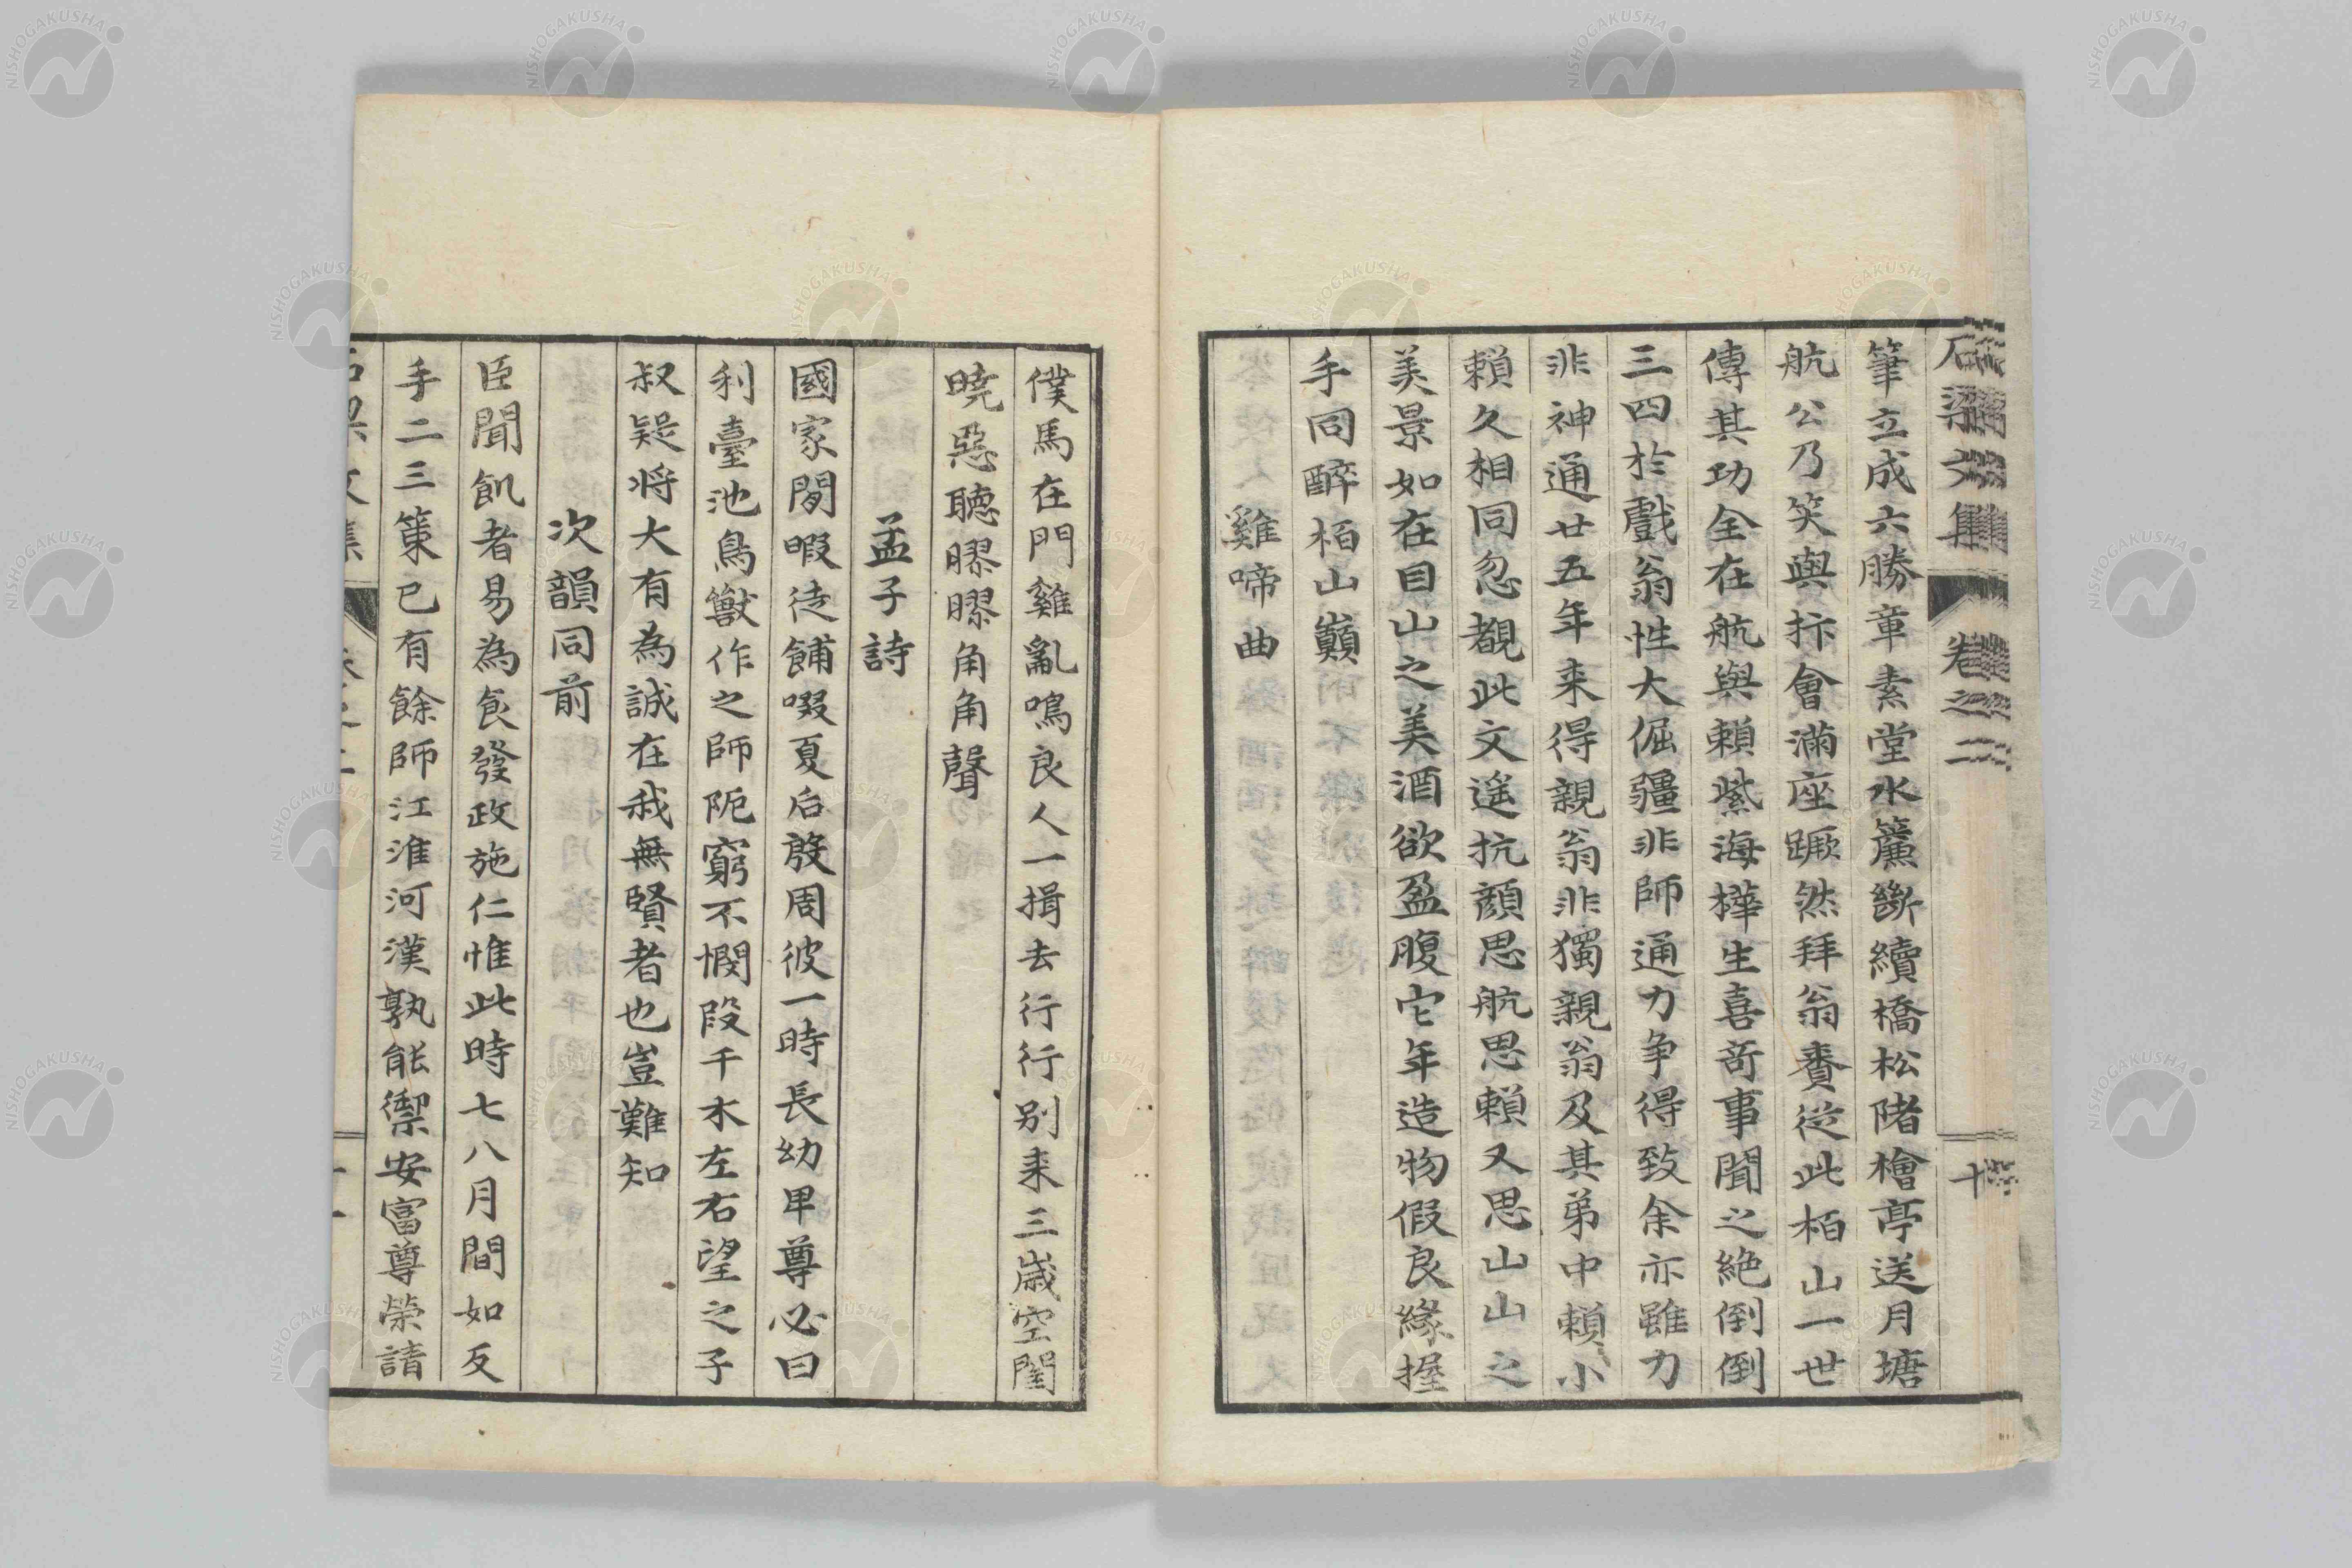 石梁文集 卷之二 十
筆立成六勝章素堂水簾斷續橋松陼檜亭送月塘
航公乃笑與抃會滿座蹶然拜翁賚從此栢山一世
傳其功全在航與賴紫海樺生喜奇事聞之絶倒倒
三四於戲翁性大倔彊非師通力争得致余亦雖力
非神通廿五年来得親翁非獨親翁及其弟中賴小
賴久相同忽覩此文遥抗顔思航思賴又思山山之
美景如在目山之美酒欲盈腹它年造物假良緣握
手同醉栢山巓
雞啼曲
僕馬在門雞亂鳴良人一揖去行行別来三歲空閨
暁惡聽膠膠角角聲
孟子詩
國家閒暇徒餔啜夏后殷周彼一時長幼卑尊必曰
利臺池鳥獸作之師阨窮不憫段干木左右望之子
叔疑将大有為誠在我無賢者也豈難知
次韻同前
臣聞飢者易為食發政施仁惟此時七八月間如反
手二三策已有餘師江淮河漢孰能禦安富尊榮請
NISHOGAKUSHA